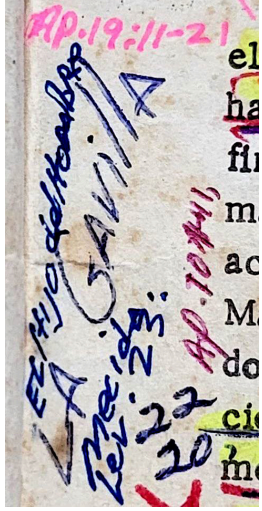 AP.19:11-21
EL HIJO del HOMBRE
LA GAVILLA
Mecida:
Lev. 23:
22
20,
el
ha
fi
ac
do
cie
me